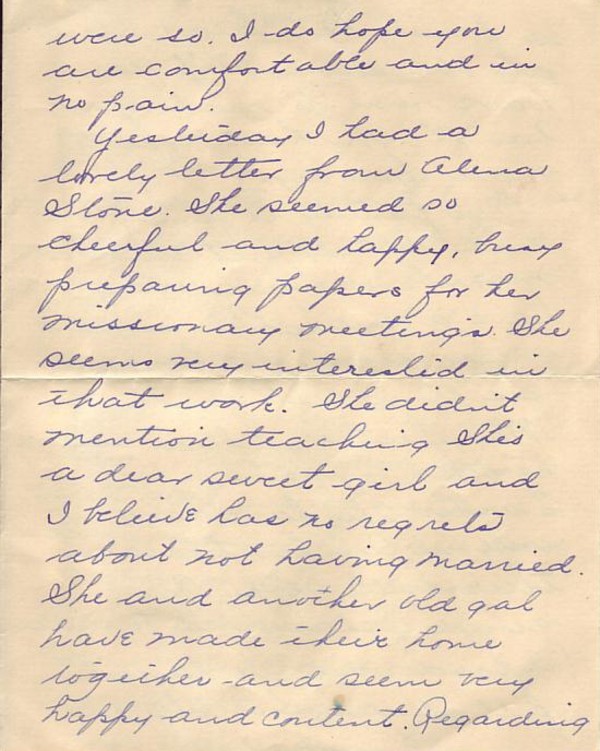 were so. I do hope you
are comfortable and in
no pain.
Yesterday I had a
lovely letter from Alena
Stone. She seemed so
cheerful and happy, busy
preparing papers for her
missionary meetings. She
seems very interested in
that work. She didn't
mention teaching She's
a dear sweet girl and
I believe has no regrets
about not having married.
She and another old gal
have made their home
together and seem very
happy and content. Regarding